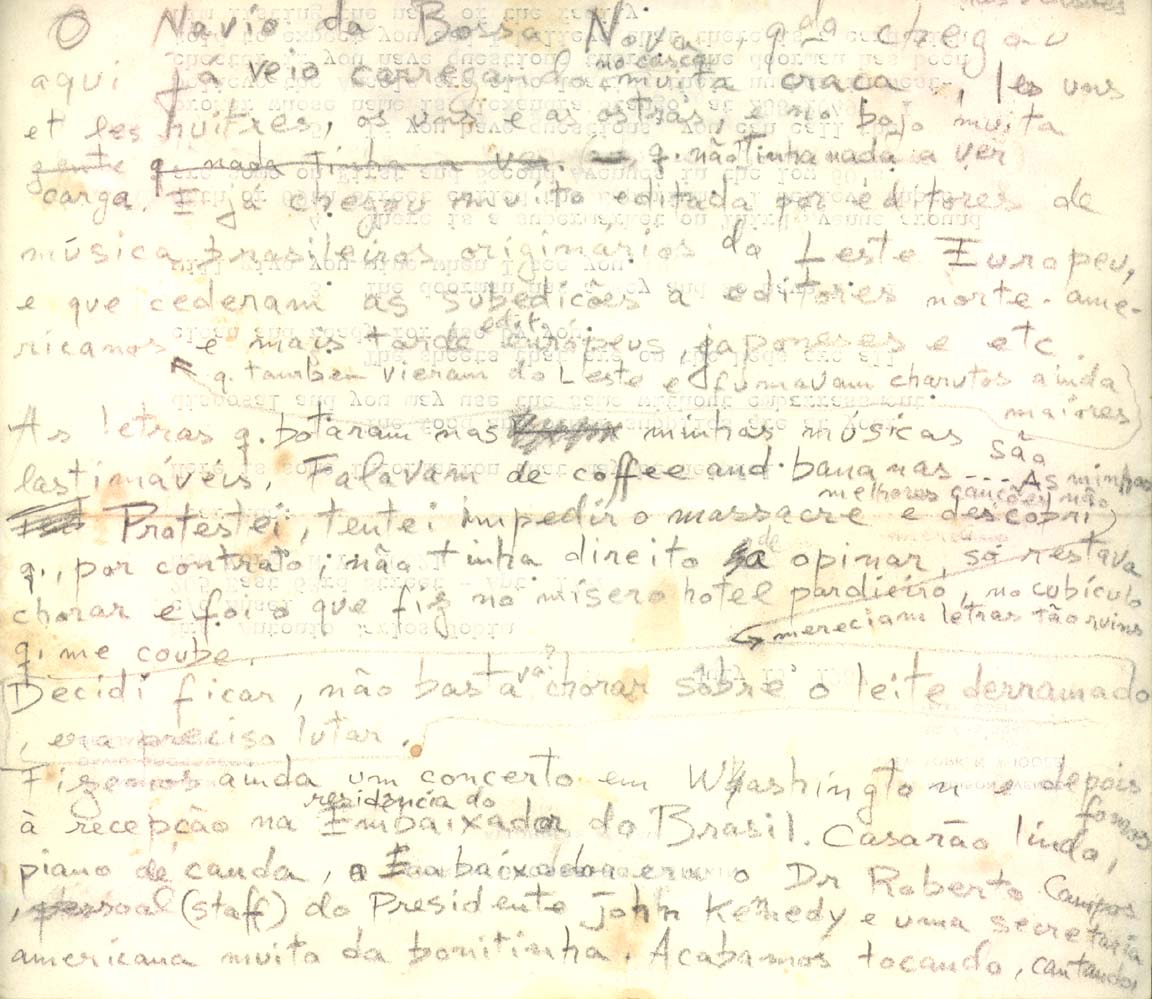 O Navio da Bossa Nova, qdo chegou
aqui já veio carregando no casco muita craca, les uns
et les huitres, os uns e as ostras, e no bojo muita
gente q. nada tinha a ver q. não tinha nada a ver
carga. E já chegou muito editada por editores de
música brasileiros originários do Leste Europeu,
e que cederam as subedições a editores norte-ame-
ricanos e mais tarde edit. europeus, japoneses e etc.
q. tambem vieram do Leste e fumavam charutos ainda
maiores
As letras q. botaram nas minhas músicas são
lastimáveis. Falavam de coffee and bananas .... As minhas
melhores canções não
Protestei, tentei impedir o massacre e descobri
q., por contrato, não tinha direito de opinar, só restava
chorar e foi o que fiz no mísero hotel pardieiro, no cubículo
mereciam letras tão ruins
q. me coube.
Decidi ficar, não bastava? chorar sobre o leite derramado
, era preciso lutar.
Fizemos ainda um concerto em Washington e depois
fomos
à recepção na residência do Embaixador do Brasil. Casarão lindo,
piano de cauda, o Embaixador era o Dr Roberto Campos
, pessoal (staff) do Presidente John Kennedy e uma secretaria
americana muito da bonitinha. Acabamos tocando, cantando,